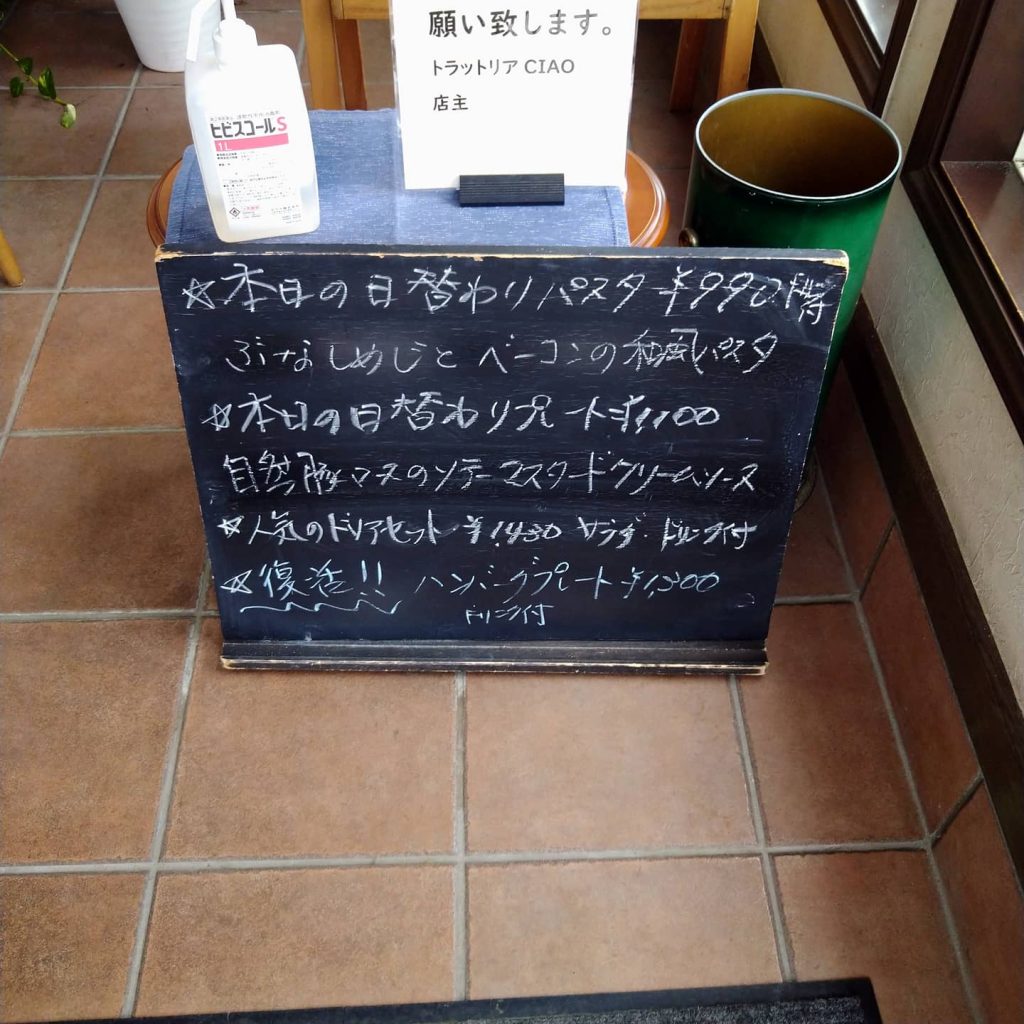 願い致します。
トラットリア CIAO
店主
ヒビスコールS
1L
☆本日の日替わりパスタ ¥990
ぶなしめじとベーコンの和風パスタ
☆本日の日替わりプレート ¥1,100
自然豚ロースのソテーマスタードクリームソース
☆人気のドリアセット ¥1,430 サラダ・ドリンク付
☆復活!! ハンバーグプレート ¥1,300
ドリンク付